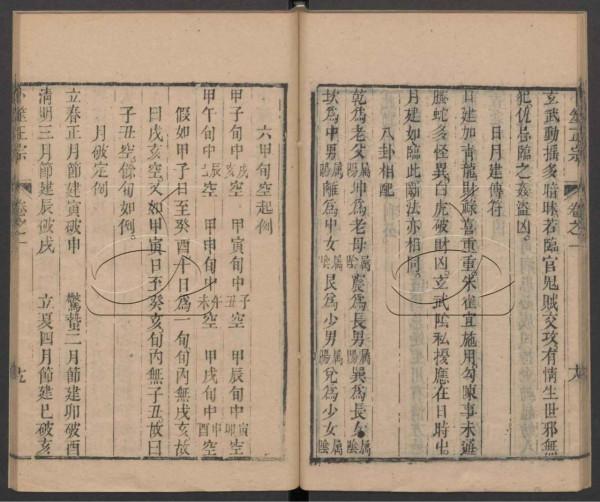 卜筮正宗
卷之一
玄武動揺多暗昧若臨官鬼賊交攻有情生世邪無
犯仇忌臨之姦盜凶
日月建傳符
日建加青龍財祿喜重重朱雀宜施用勾陳事未通
螣蛇多怪異白虎破財凶玄武陰私擾應在日時中
月建如臨此斷法亦相同
八卦相配
乾爲老父属陽 坤爲老母属陰 震爲長男属陽 巽爲長女属陰
坎爲中男属陽 離爲中女属陰 艮爲少男属陽 兌爲少女属陰
六甲旬空起例
甲子旬中戌亥空 甲寅旬中子丑空 甲辰旬中寅卯空
甲午旬中辰巳空 甲申旬中午未空 甲戌旬中申酉空
假如甲子日至癸酉十日爲一旬旬內無戌亥故
曰戌亥空。又如甲寅日至癸亥旬內無子丑故曰
子丑空。餘旬如例。
月破定例
立春正月節建寅破申 驚蟄二月節建卯破酉
清明三月節建辰破戌 立夏四月節建巳破亥
卜筮正宗
卷之一